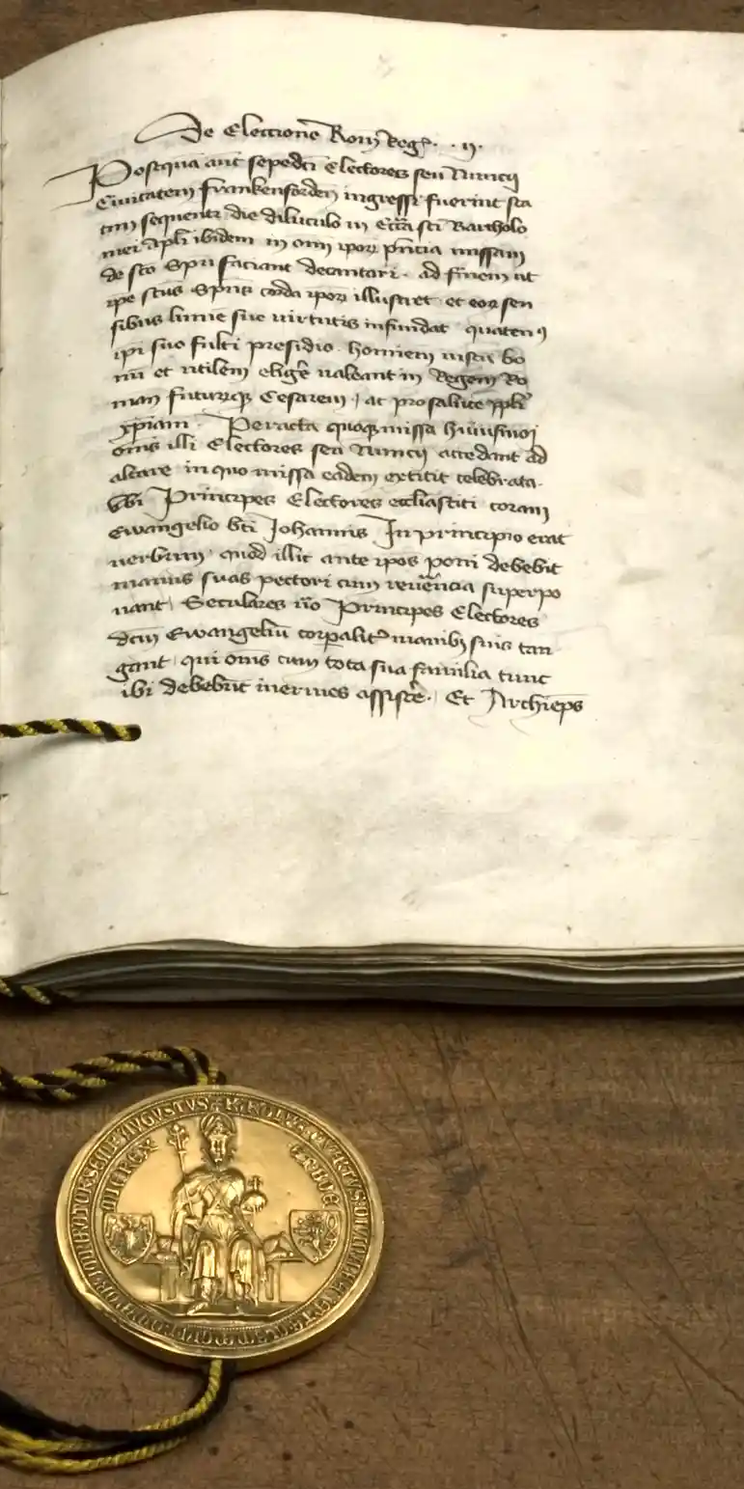 De Electione Rom̄ Regꝭ. . ij.
Postquā aūt sepedc̄i Electores seu Nuncij
Civitatem frankenforden̄ ingressi fuerint sta
tim sequentꝭ die diluculo in Ecc̄ia sc̄i Bartholo
mei apl̄i ibidem in om̄i ip̄oꝝ pn̄cia missam
de sc̄o Spū faciant decantari. ad finem ut
ip̄e sc̄us Sp̄us corda ip̄oꝝ illustret et eoꝝ sen
sibus lumē sue virtutis infundat quatenꝰ
ip̄i suo fulti presidio. hominem iustū bo
nū et utilem eligē valeant in Regem Ro
man̄ futuruꝙ Cesarem, ac pro salute ppl̄i
xp̄iani. Peracta quoqꝫ missa hūiusmoi
om̄s illi Electores seu Nuncij accedant ad
altare in quo missa eadem extitit celebrata.
Vbi Principes Electores eccl̄iastici coram
Ewangelio bt̄i Johannis In principio erat
verbum. quod illic ante ip̄os poni debebit
manus suas pectori cum reuēncia superpo
nant, Seculares ūo Principes Electores
dc̄m Ewangeliū corꝑalitꝰ manibꝫ suis tan
gant, qui om̄s cum tota sua familia tunc
ibi debebūt inermes assistē. Et Archiep̄s
KAROLVS QVARTVS DIVINA
SEMPER AVGVSTVS
ET BOEMIE REX